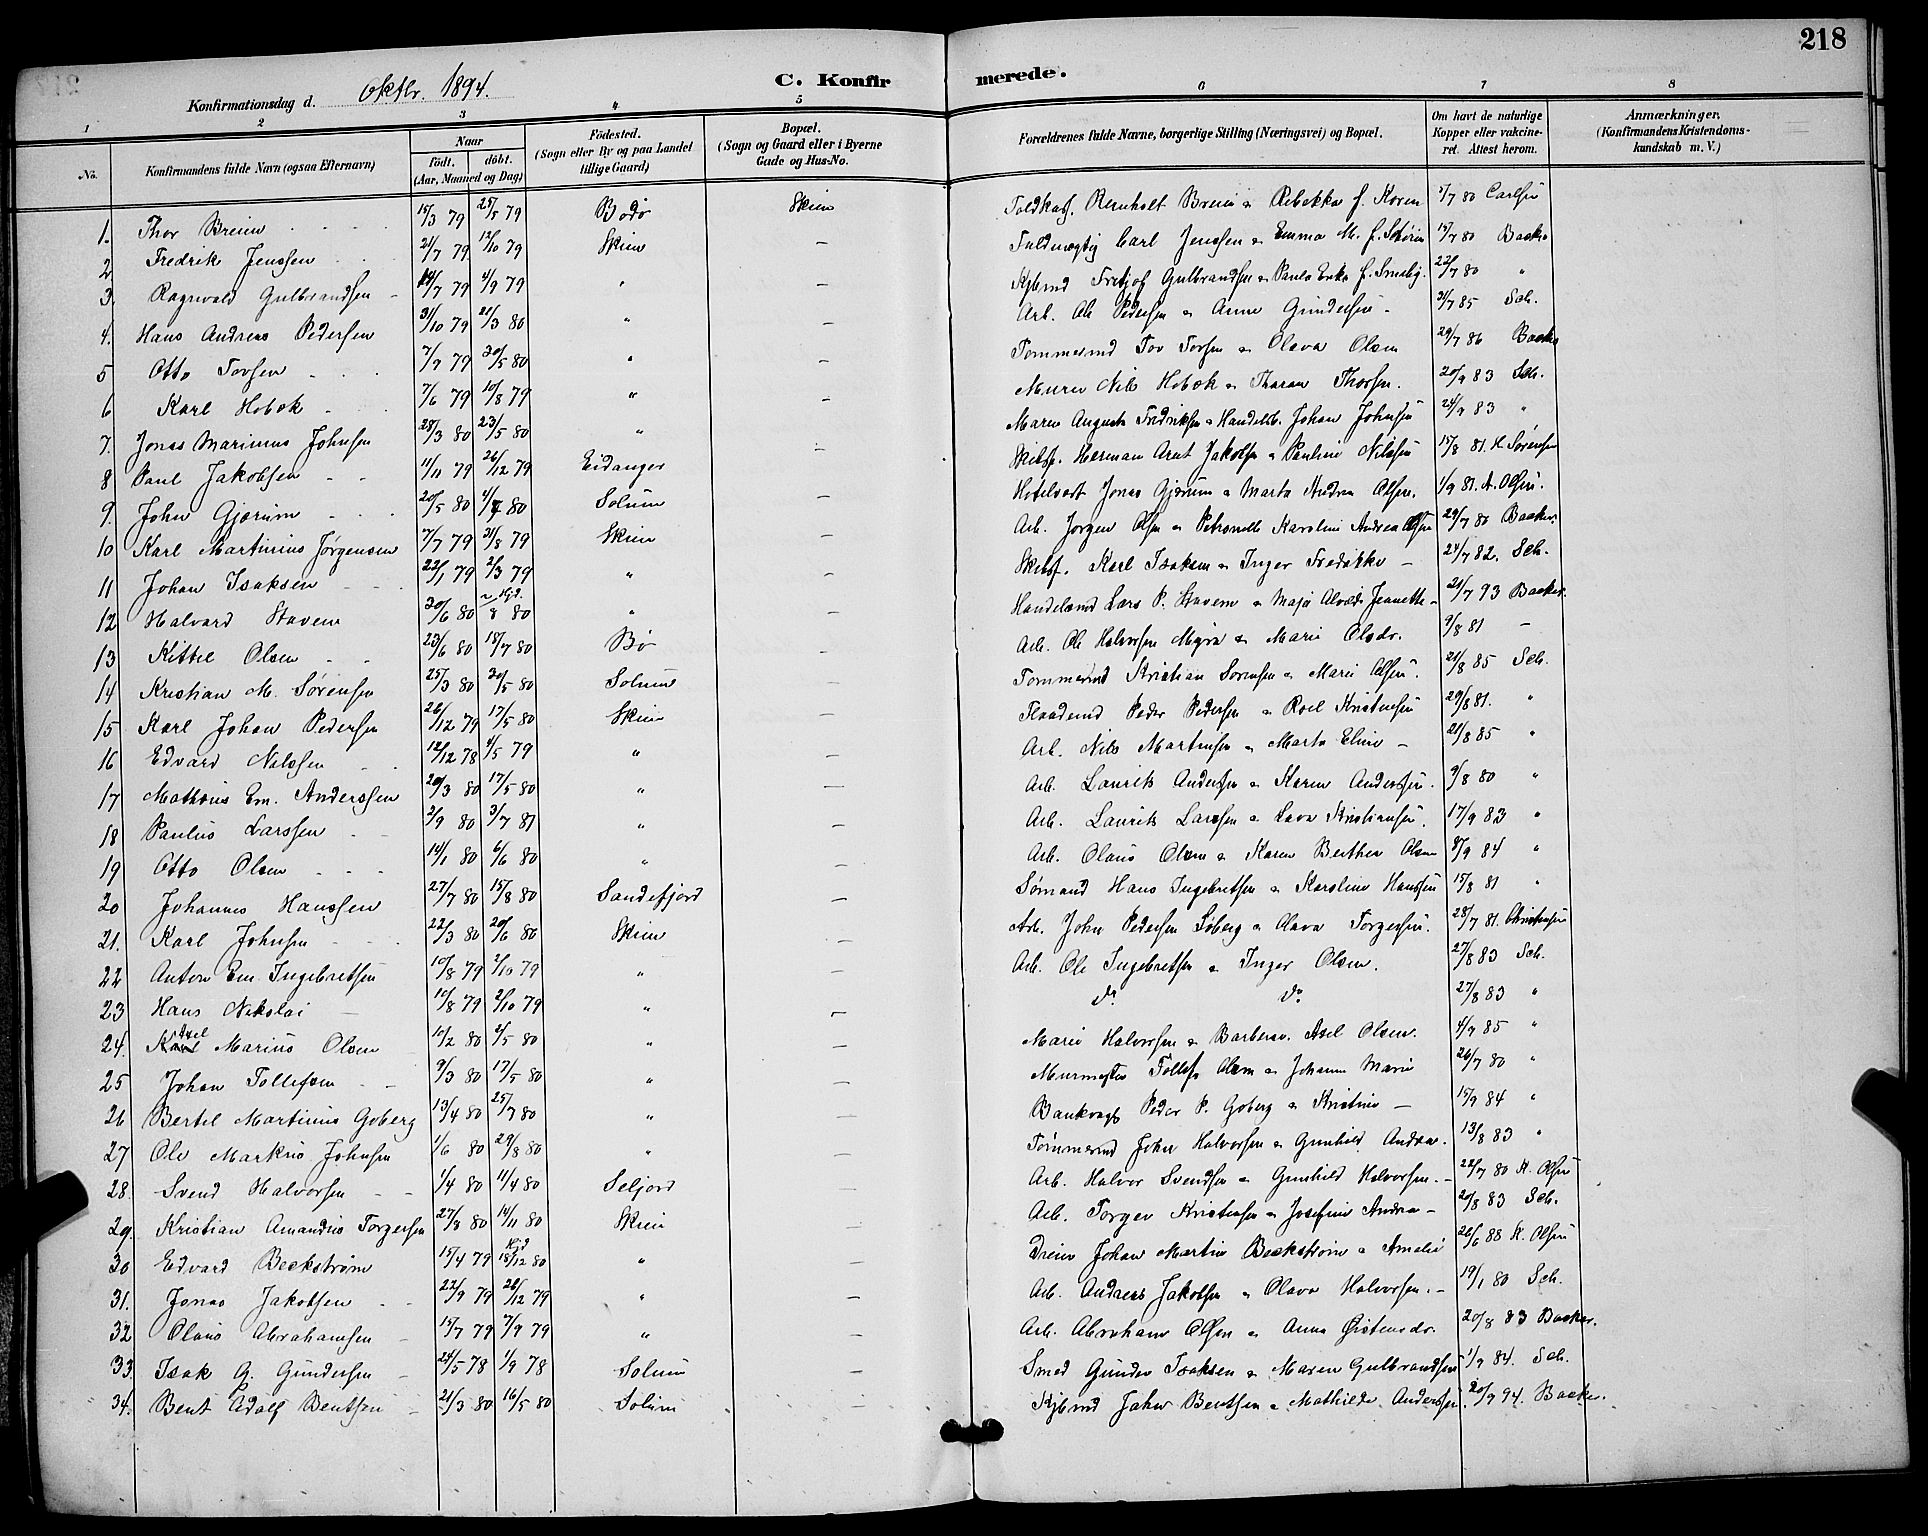 218
Konfirmationsdag d. Oktbr. 1894.
C. Konfirmerede.
1 2 3 4 5 6 7 8
No. Konfirmandens fulde Navn (ogsaa Efternavn) Naar født, døbt. (Aar, Maaned og Dag) Födested. (Sogn eller By og paa Landet tillige Gaard) Bopæl. (Sogn og Gaard eller i Byerne Gade og Hus-No. Forældrenes fulde Navne, borgerlige Stilling (Næringsvei) og Bopæl. Om havt de naturlige Kopper eller vakcineret. Attest herom. Anmærkninger. (Konfirmandens Kristendomskundskab m. V.)
1. Thor Breien 15/3 79 25/5 79 Bodø Skien Toldkas. Bernholt Breien & Rebekka f. Koren 5/7 80 Carlsen
2 Fredrik Jenssen 21/7 79 12/10 79 Skien — Fuldmægtig Carl Jenssen & Emma M. f. 15/7 80 Backer
3. Ragnvald Gulbrandsen 14/7 79 4/9 79 " — Kjbmd Fritjof Gulbrandsen & Paula f. 22/7 80 "
4. Hans Andreas Pedersen 31/10 79 21/3 80 " — Arb. Ole Pedersen & Anne Gundersen 21/7 85 Sch.
5 Otto Torsen 7/9 79 20/5 80 " — Tømmermd Tov Torsen & Olava Olsen 29/7 86 Backer
6 Karl Hobæk 7/6 79 10/8 79 " — Murer Nils Hobæk & Tharan Thorsen. 20/9 83 Sch.
7. Jonas Marinius Johnsen 28/3 80 23/5 80 " — Maren Augusta Fredriksen & Handelsb. Johan Johnsen 24/9 83 "
8 Paul Jakobsen 11/11 79 26/12 79 Eidanger — Skibsf. Herman Arnt Jakobsen & Pauline Nilssen 15/8 81. K. Sørensen
9. John Gjærum 20/5 80 4/7 80 Solum — Hotelvert Jonas Gjærum & Marta Andrea Olsen. 1/9 81. A. Olsen.
10 Karl Martinius Jørgensen 7/7 79 31/8 79 Skien — Arb. Jørgen Olsen & Petronelle Karoline Andrea Olsen 29/7 80 Backer.
11 Johan Isaksen 22/1 79 2/3 79 " — Skibsf. Karl Isaksen & Inger Fredrikke — 24/7 82. Sch.
12 Halvard Stavem 20/6 80 8 80 " — Handelsmd Lars P. Stavem & Maja Alvilde Jeanette — 21/7 93 Backer.
13 Kittel Olsen 23/6 80 18/7 80 Bø — Arb. Ole Halvorsen Myra & Marie Olsdr. 9/8 81 —
14 Kristian M. Sørensen 25/3 80 30/5 80 Solum — Tømmermd Kristian Sørensen & Marie Olsen. 21/8 85 Sch.
15 Karl Johan Pedersen 26/12 79 17/5 80 Skien — Flaademd Peder Pedersen & Roel Kristensen 29/8 81. "
16 Edvard Nilssen 12/12 78 4/5 79 " — Arb. Nils Martinsen & Marta Eline — 21/8 85 "
17 Mathæus Em. Anderssen 20/3 80 17/5 80 " — Arb. Laurits Andersen & Karen Anderssen. 9/8 80 "
18 Paulus Larssen 2/9 80 3/7 81 " — Arb. Laurits Larssen & Lava Kristiansen. 17/9 83 "
19 Otto Olsen 14/1 80 6/6 80 " — Arb. Olaus Olsen & Karen Berthea Olsen 8/9 84 "
20 Johannes Hanssen 27/7 80 15/8 80 Sandefjord — Sømand Hans Ingebretsen & Karoline Hanssen 15/8 81 "
21. Karl Johnsen 22/3 80 20/6 80 Skien — Arb. John Pedersen Soberg & Olava Torgersen. 28/7 81. Christensen
22 Anton Em. Ingebretsen 10/8 79 2/10 79 " — Arb. Ole Ingebretsen & Inger Olsen. 27/8 83 Sch.
23 Hans Nikolai — 10/8 79 2/10 79 " — do do 27/8 83 "
24. Axel Marius Olsen 10/2 80 2/5 80 " — Marie Halvorsen & Barbersv. Axel Olsen. 4/9 85 "
25 Johan Tollefsen 9/3 80 17/5 80 " — Murmester Tollef Olsen & Johanne Marie 26/7 80 "
26 Bertel Martinius Goberg 13/4 80 25/7 80 " — Bankvagt Peder P. Goberg & Kristine — 15/9 84 "
27 Ole Markus Johnsen 1/6 80 29/8 80 " — Tømmermd John Halvorsen & Gunhild Andrea. 13/8 83 "
28. Svend Halvorsen 1/4 80 11/4 80 Seljord — Arb. Halvor Svendsen & Gunhild Halvorsen. 22/7 80 K. Olsen
29. Kristian Amandus Torgersen 27/8 80 14/11 80 Skien — Arb. Torger Kristensen & Josefine Andrea — 20/8 83 Sch.
30 Edvard Beckstrøm 15/4 79 18/12 80 " — Dreier Johan Martin Beckstrøm & Amalie 26/6 88 K. Olsen
31. Jonas Jakobsen 22/9 79 26/12 79 " — Arb. Andreas Jakobsen & Olava Halvorsen. — 19/1 80 Sch.
32 Olaus Abrahamsen 15/7 79 7/9 79 " — Arb. Abraham Olsen & Anna Østensdr. 20/8 83 Backer.
33. Isak G. Gundersen 24/5 78 1/9 78 Solum — Smed Gunder Isaksen & Maren Gulbrandsen 1/9 84. Sch.
34. Bent Adolf Bentsen 21/3 80 16/5 80 Solum — Kjbmd John Bentsen & Mathilde Anderssen. 20/9 94. Backer.